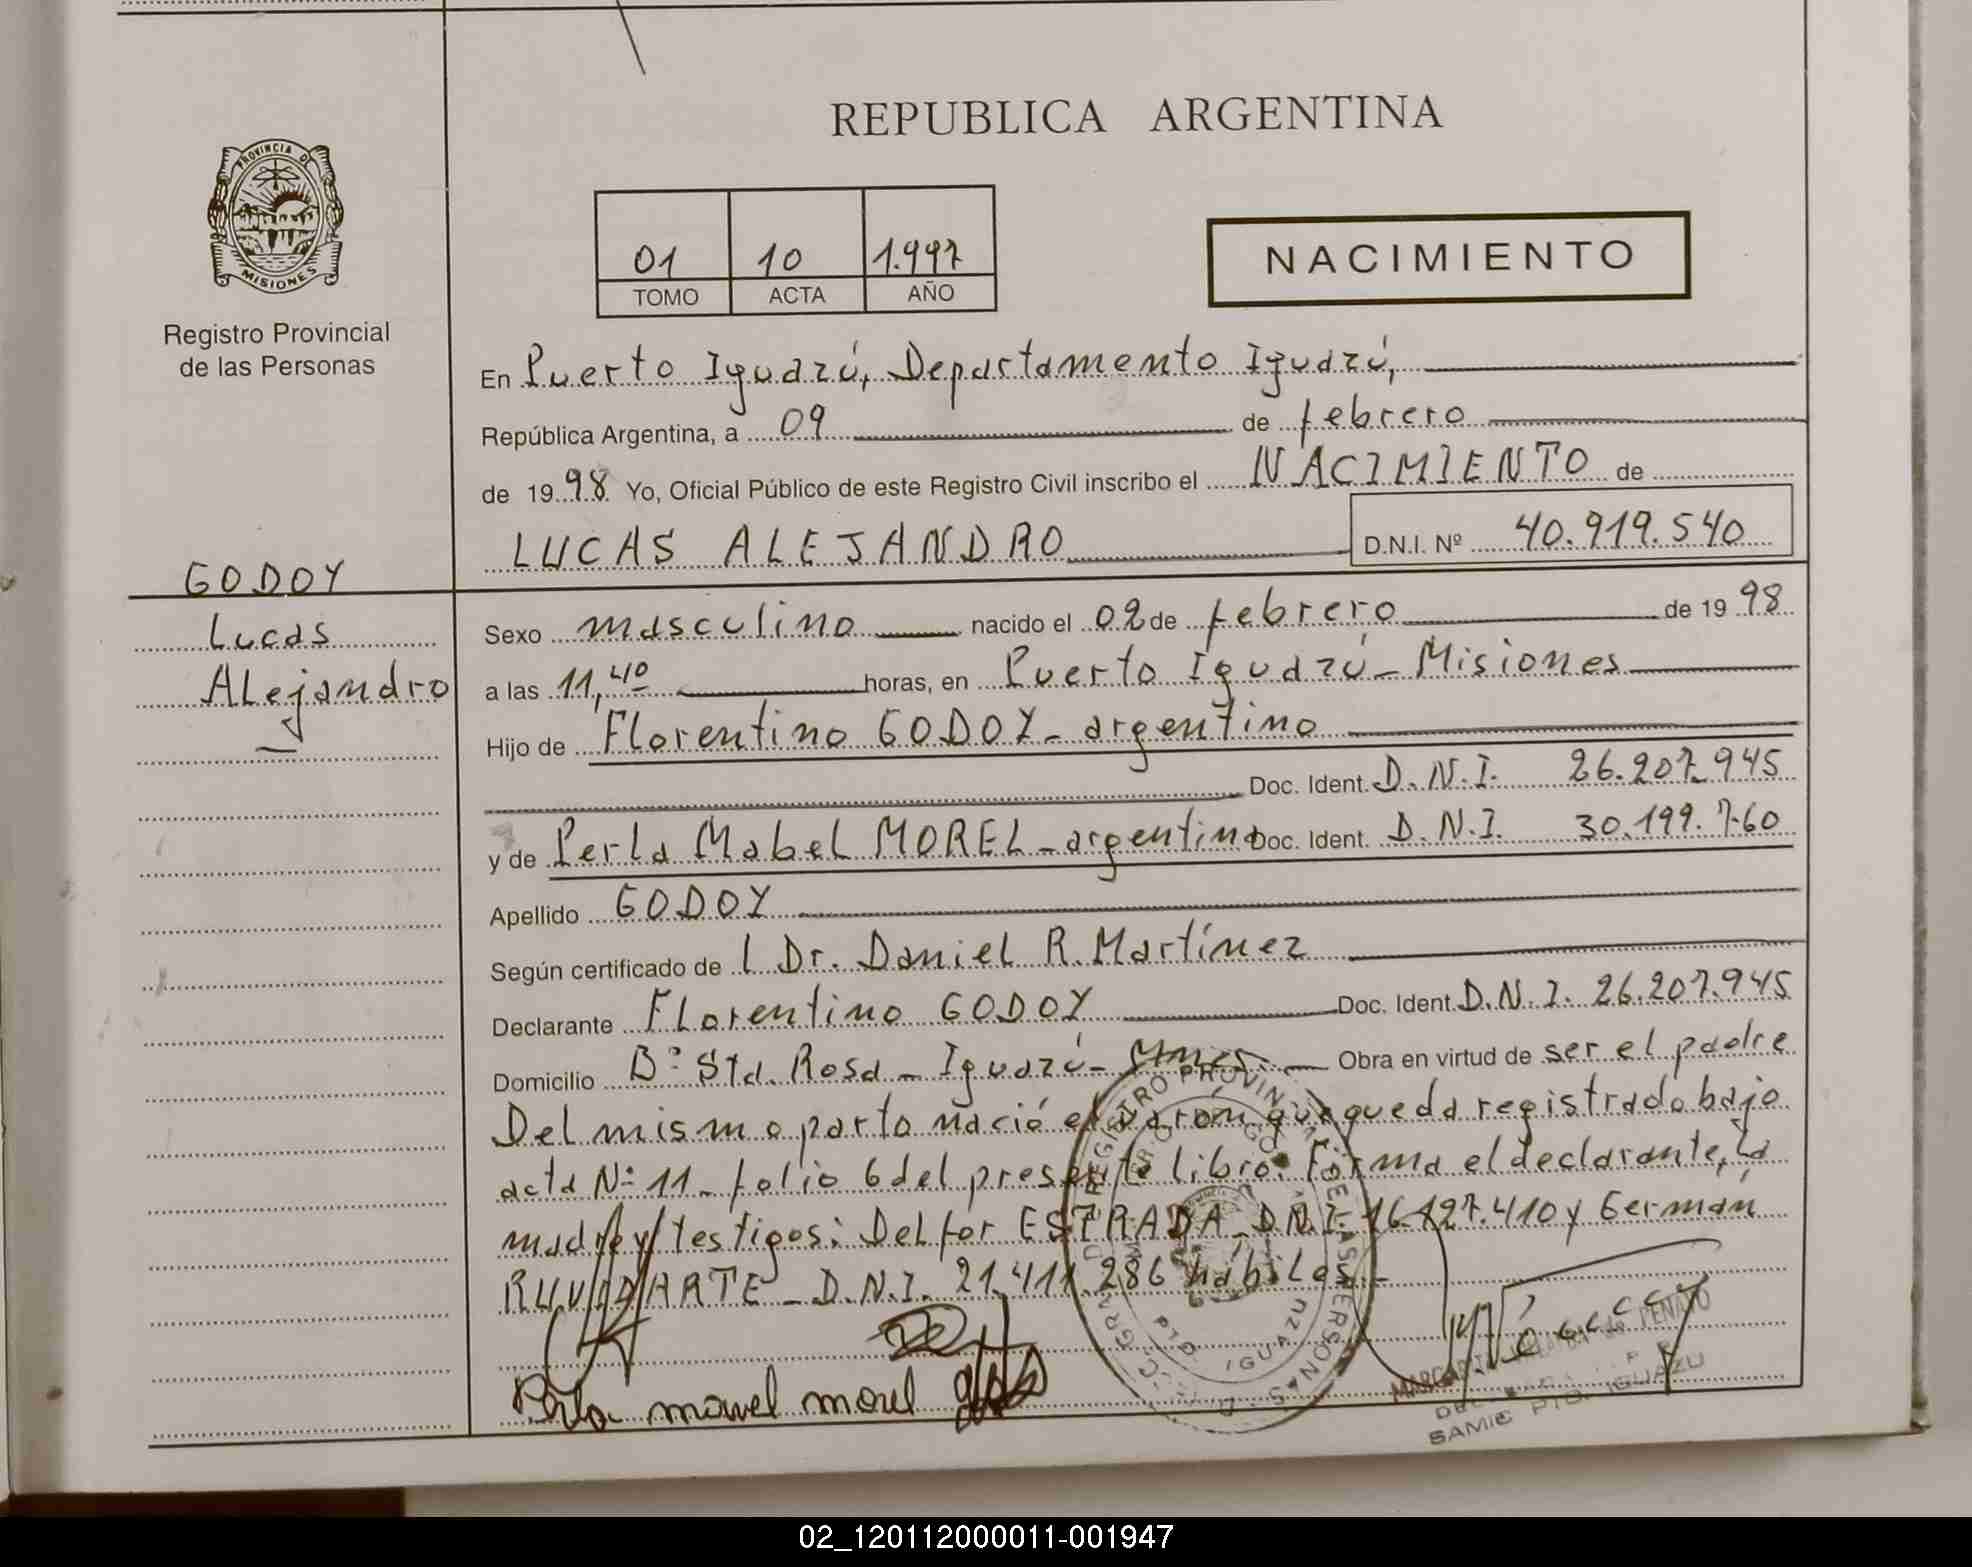 REPUBLICA ARGENTINA
PROVINCIA DE
MISIONES
Registro Provincial
de las Personas
01 10 1.997
TOMO ACTA AÑO
NACIMIENTO
En Puerto Iguazú, Departamento Iguazú,
República Argentina, a 09 de febrero
de 1998. Yo, Oficial Público de este Registro Civil inscribo el NACIMIENTO de
LUCAS ALEJANDRO D.N.I. Nº 40.919.540
GODOY
Lucas
ALejandro
Sexo masculino nacido el 02 de febrero de 1998
a las 11,40 horas, en Puerto Iguazú - Misiones
Hijo de Florentino GODOY - argentino
Doc. Ident. D.N.I. 26.207.945
y de Perla Mabel MOREL - argentina Doc. Ident. D.N.I. 30.199.760
Apellido GODOY
Según certificado de l Dr. Daniel R. Martínez
Declarante Florentino GODOY Doc. Ident. D.N.I. 26.207.945
Domicilio Bº Sta. Rosa - Iguazú - Mnes. Obra en virtud de ser el padre
Del mismo parto nació el varon que queda registrado bajo
acta Nº 11 - folio 6 del presente libro. Firma el declarante, la
madre y testigos: Delfor ESTRADA - D.N.I. 16.127.410 y Germán
RUVIDARTE - D.N.I. 21.411.286 hábiles.-
Perla mavel morel
REGISTRO PROVINCIAL DE LAS PERSONAS
PTO. IGUAZU
SAMIC PTO. IGUAZU
02_120112000011-001947